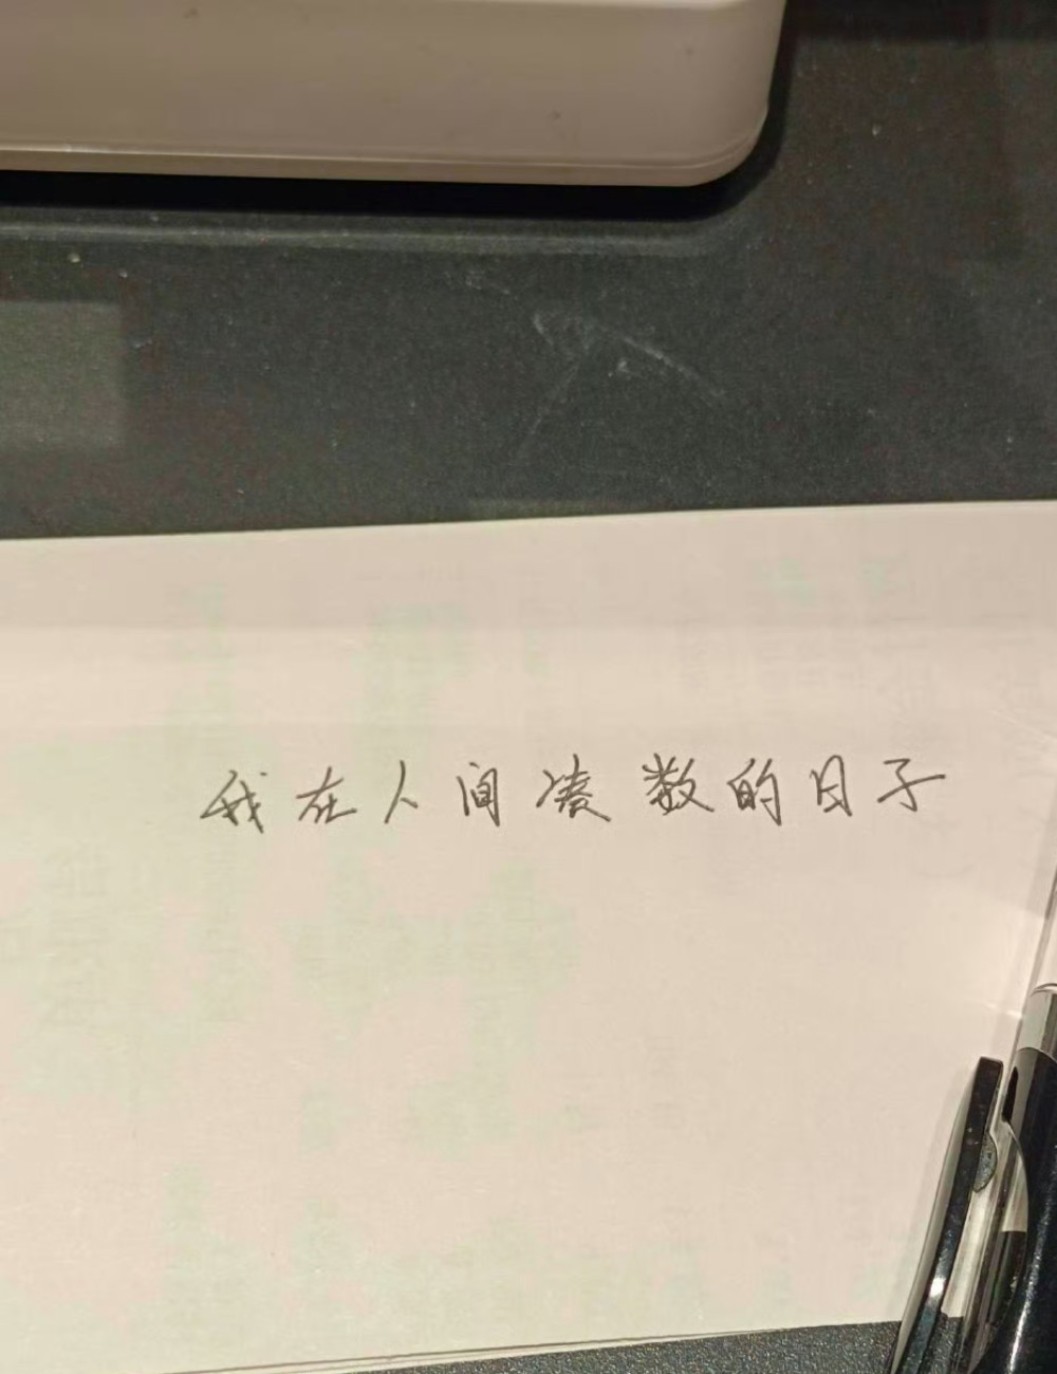 我在人间凑数的日子